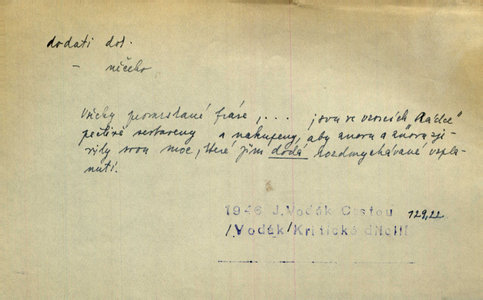 dodati dok.
– něčeho
Všecky promrskané fráse, . . . jsou ve verších Rádce
pečlivě sebrány a nakupeny, aby znovu a znovu zje-
vily svou moc, které jim dodá rozdmychávané vzpla-
nutí.
1946 J.Vodák Cestou 129,22.
/Vodák/Kritické dílo III